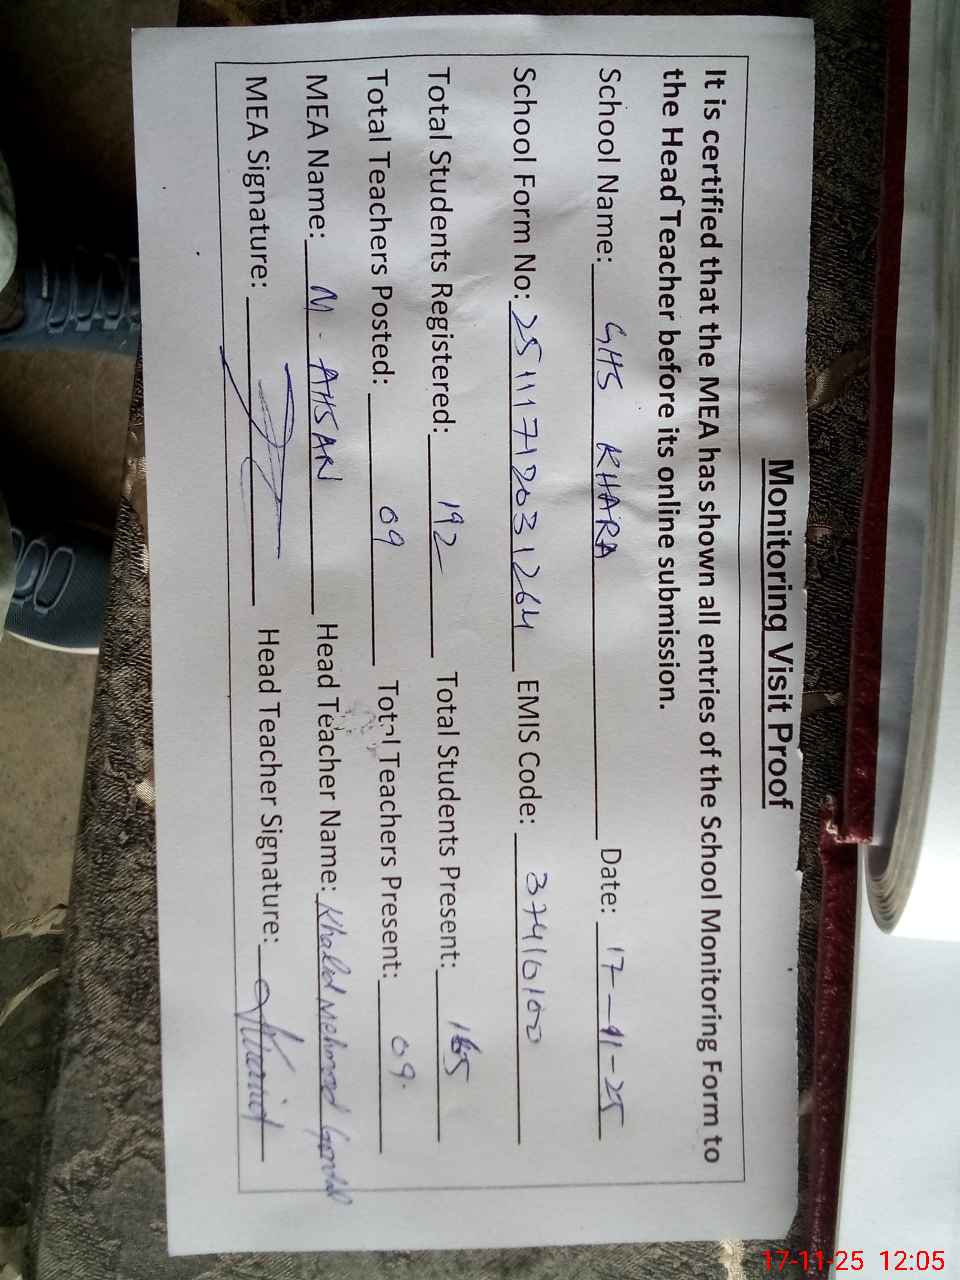 Monitoring Visit Proof
It is certified that the MEA has shown all entries of the School Monitoring Form to
the Head Teacher before its online submission.
School Name: GHS KHARA Date: 17-11-25
School Form No: 25111712031264 EMIS Code: 37410100
Total Students Registered: 192 Total Students Present: 165
Total Teachers Posted: 09 Total Teachers Present: 09
MEA Name: M. AHSAN Head Teacher Name: Khaled Mehmood
MEA Signature: Head Teacher Signature:
17-11-25 12:05